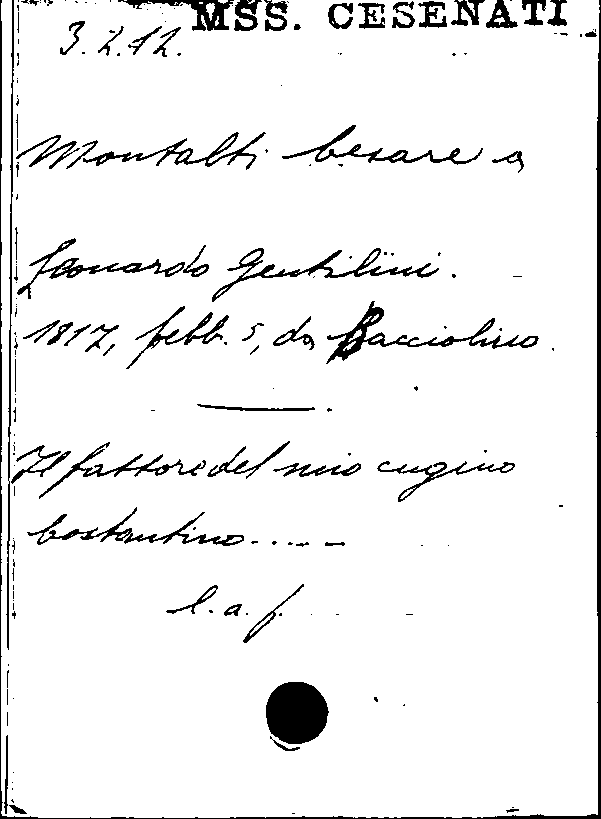 MSS. CESENATI
3.2.12.
Montalti Cesare a
Leonardo Gentilini.
1817, febb. 5, da Bacciolino.
Il fattore del mio cugino
Costantino.....
l. a. f.